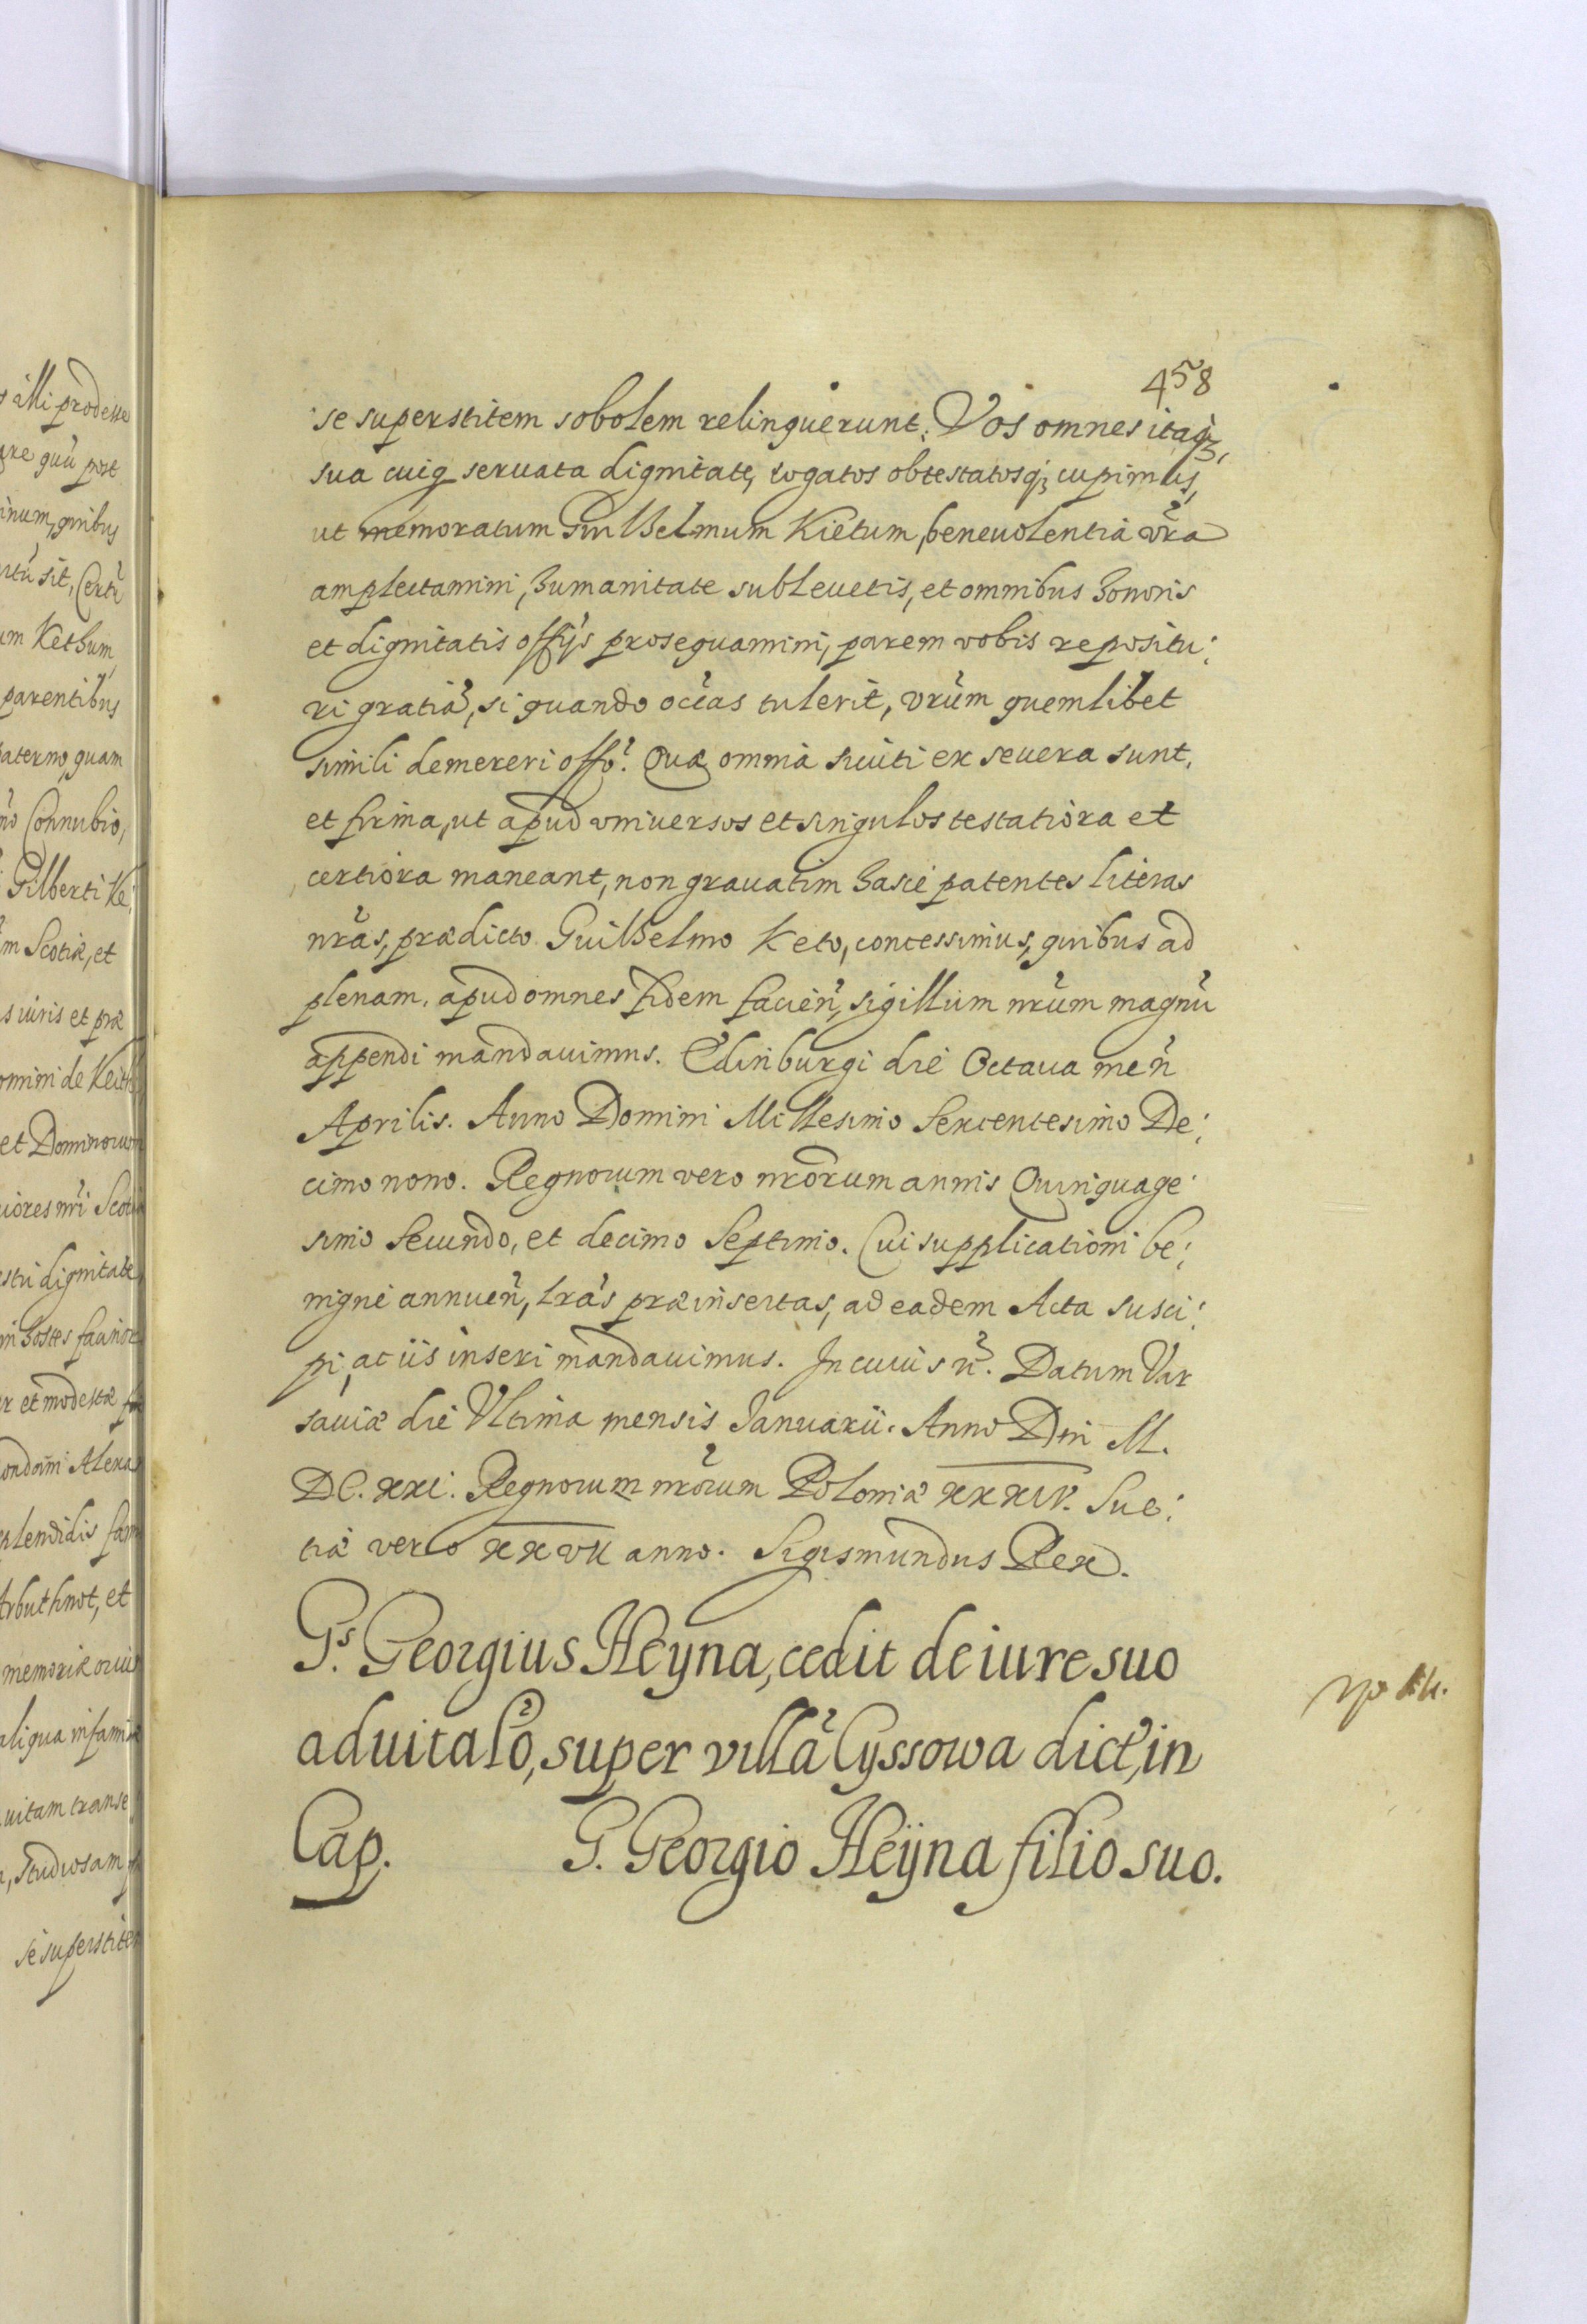 458
se superstitem sobolem relinquerunt. Vos omnes itaq3,
sua cuiq servata dignitate, rogatos obtestatosq3 cupimus,
ut memoratum Guilhelmum Kietum, benevolentia vr̃a
amplectamini, humanitate sublevetis, et omnibus honoris
et dignitatis officijs prosequamini, parem vobis repositu:
ri gratiã, si quando occ̃as tulerit, vr̃um quemlibet
simili demereri offõ. Quæ omnia sicuti ex se vera sunt,
et firma, ut apud universos et singulos testatiora et
certiora maneant, non gravatim hasce patentes literas
nr̃as, prædicto Guilhelmo Keto, concessimus, quibus ad
plenam, apud omnes fidem facieñ, sigillum nr̃um magnũ
appendi mandavimus. Edinburgi die Octava meñ
Aprilis. Anno Domini Millesimo Sexcentesimo De:
cimo nono. Regnorum vero nr̃orum annis Quinquage
simo Secundo, et decimo Septimo. Cui supplicationi be:
nigne annueñ, lr̃as præinsertas, ad eadem Acta susci:
pi, ac iis inseri mandavimus. In cuius rẽ. Datum Var
saviæ die Ultima mensis Januarii. Anno Dñi M.
DC.XXI. Regnorum nr̃orum Poloniæ XXXIV. Sue:
tiæ vero XXVII anno. Sigismundus Rex.
Gs. Georgius Heyna, cedit de iure suo
advitalõ, super villã Cyssowa dict̃, in
Cap. G. Georgio Heijna filio suo.
s illi prodesse
re quũ post
inum, quibus
sit, Certũ
um Kethum
parentibus
paterno, quam
Connubio,
Gilberti Ke:
m Scotiæ, et
s iuris et præ
omini de Keith
et Dominorum
iores nr̃i Scot
dignitate
in hostes
r et modestæ
ondam Alexa
plendidis fam
Arbuthnot, et
memoriæ
aliqua infami
vitam transe
Studiosam
se superstitem